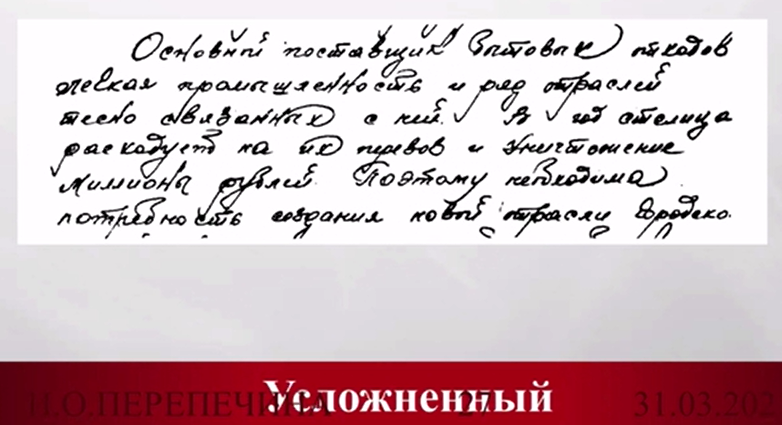 Основной поставщик бытовых отходов
легкая промышленность и ряд отраслей
тесно связанных с ней. В год столица
расходует на их перевов и уничтожение
миллионы рублей. Поэтому необходима
потребность создания новой отрасли городско
Усложненный
Н.О.ПЕРЕПЕЧИНА 27 31.03.202